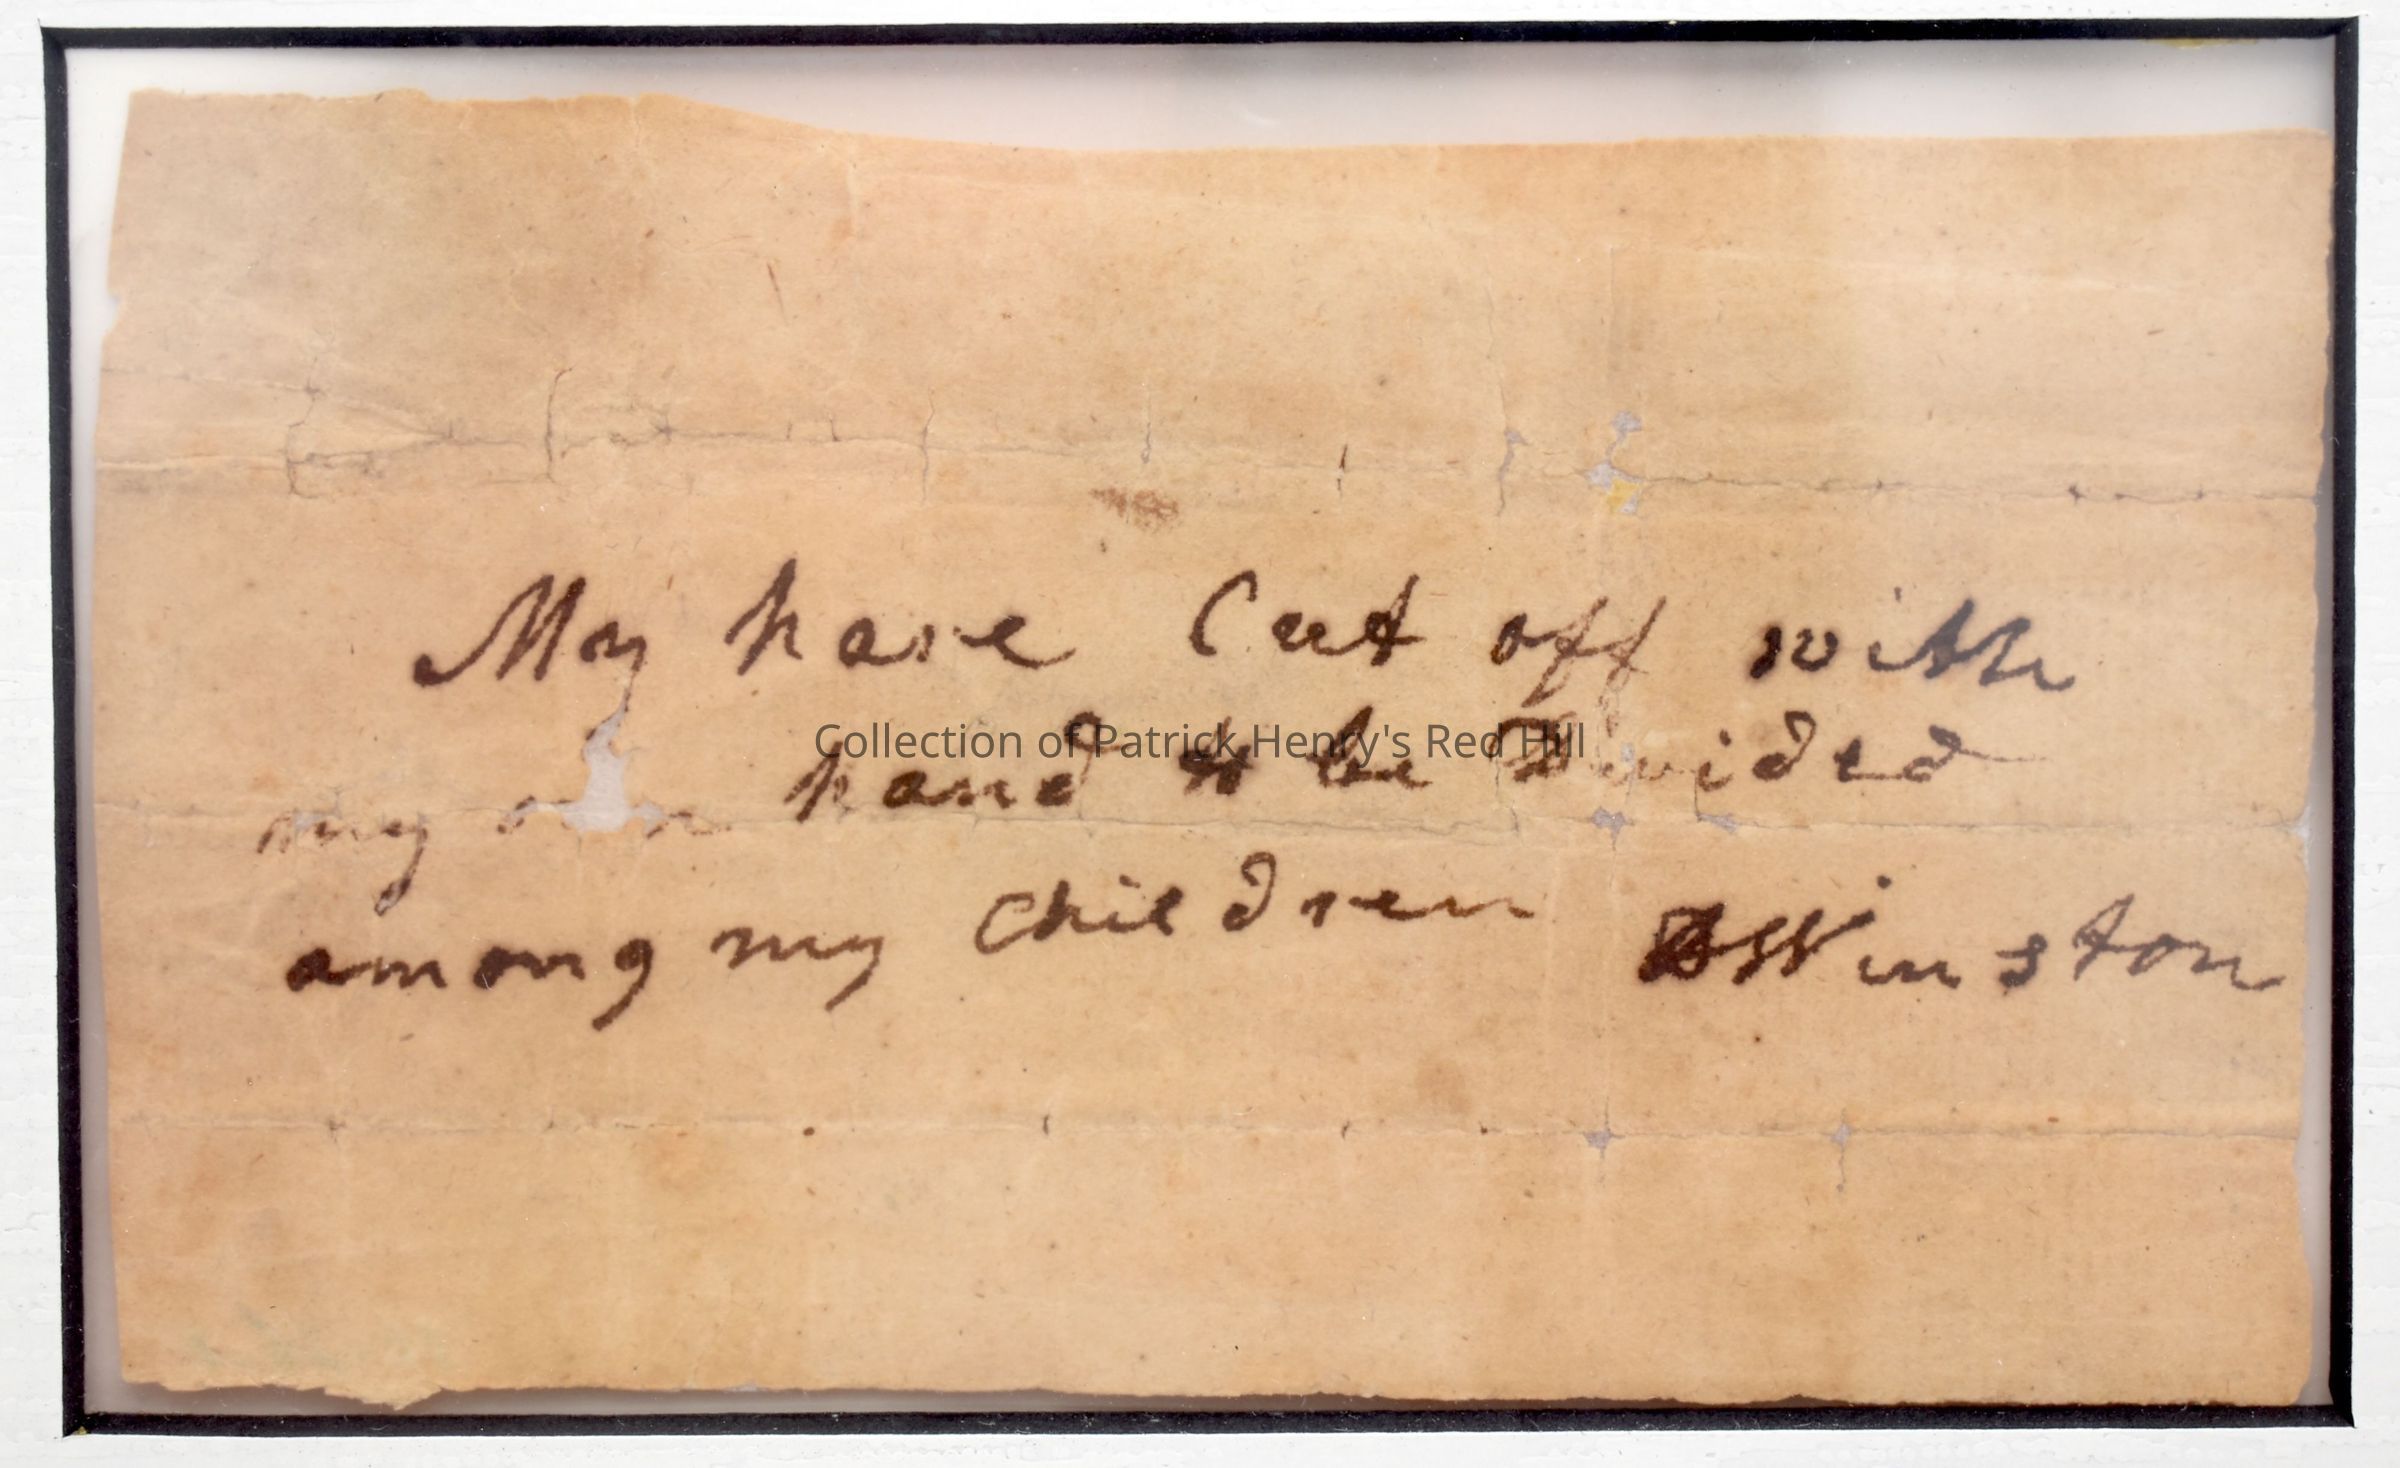 My hare Cut off with
my own hand to be Divided
among my Children Winston
Collection of Patrick Henry's Red Hill